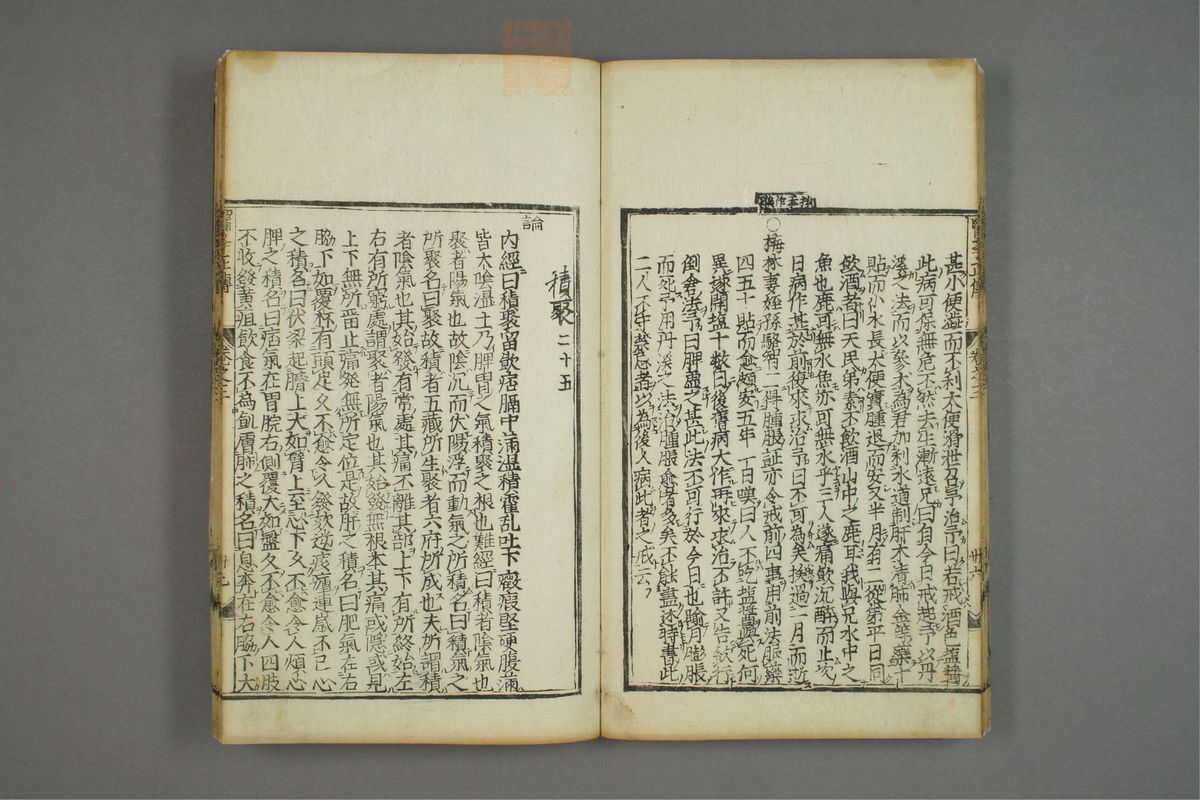 甚小便澁而不利大便滑泄召予治予曰若戒酒色塩醬
此病可保無危不然去生漸遠兄曰自今日戒起予以丹
溪之法而以參朮為君加利水道制肝木清肺金等藥十
貼而小水長大便實腫退而安又半月有二從弟平日同
飲酒者曰天民弟素不飲酒山中之鹿耳我與兄水中之
魚也鹿可無水魚亦可無水乎三人遂痛飲沉醉而止次
日病作甚於前復來求治予曰不可為矣挨過一月而逝
○梅林妻姪孫駱智二得腫脹証亦令戒前四事用前法服藥
四五十貼而愈頗安五年一日嘆曰人不吃塩醬與死何
異遂開塩十數日後舊病大作再來求治不許又告欲行
倒倉法予曰脾虛之甚此法不可行於今日也踰月膨脹
而死予用丹溪之法治腫脹愈者多矣不能盡述特書此
二人不守禁忌者以為後人病此者之戒云
積聚 二十五
論
內經曰積聚留飲痞膈中滿濕積霍乱吐下癥瘕堅硬腹滿
皆太陰濕土乃脾胃之氣積聚之根也難經曰積者陰氣也
聚者陽氣也故陰沉而伏陽浮而動氣之所積名曰積氣之
所聚名曰聚故積者五藏所生聚者六府所成也夫所謂積
者陰氣也其始發有常處其痛不離其部上下有所終始左
右有所窮處謂聚者陽氣也其始發無根本其痛或隱或見
上下無所畱止痛発無所定位是故肝之積名曰肥氣在右
脇下如覆杯有頭足久不愈令人發欬逆痎瘧連歲不已心
之積名曰伏梁起臍上大如臂上至心下久不愈令人煩心
脾之積名曰痞氣在胃脘右側覆大如盤久不愈令人四肢
不收發黃疸飲食不為肌膚肺之積名曰息賁在右脇下大